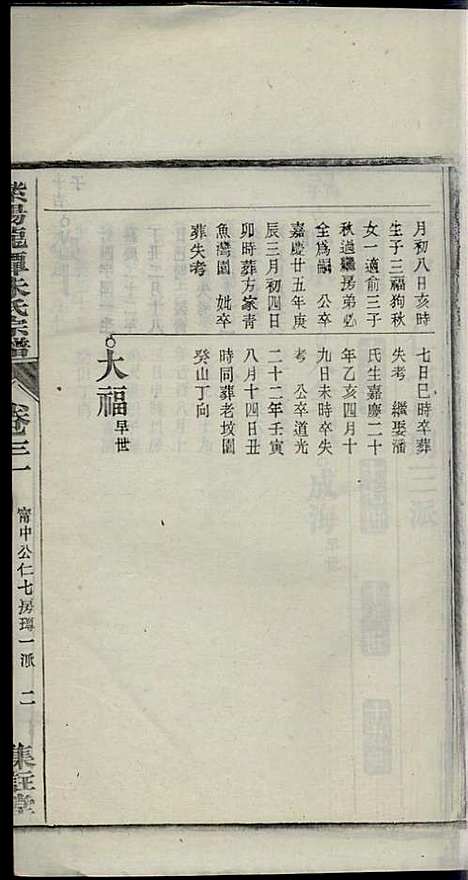 月初八日亥時
生子三福狗秋
女一適俞三子
秋過繼房弟必
全爲嗣　公卒
嘉慶廿五年庚
辰三月初四日
卯時葬方家青
魚灣園　妣卒
葬失考
七日巳時卒葬
失考　繼娶潘
氏生嘉慶二十
年乙亥四月十
九日未時卒失
考　公卒道光
二十二年壬寅
八月十四日丑
時同葬老坟園
癸山丁向
大福早世
紫陽龍潭朱氏宗譜
卷三一
甯中公仁七房璕一派　二
集註堂
三派
成海早世